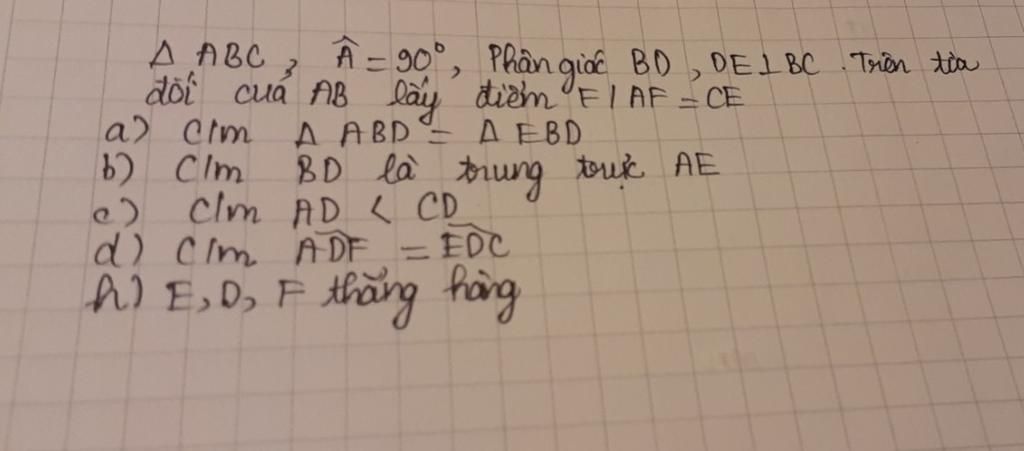 Δ ABC, Â = 90°, Phân giác BD, DE⊥BC. Trên tia
đối của AB lấy điểm F | AF = CE
a) C/m Δ ABD = Δ EBD
b) C/m BD là trung trực AE
c) C/m AD < CD
d) C/m ADF = EDC
h) E, D, F thẳng hàng